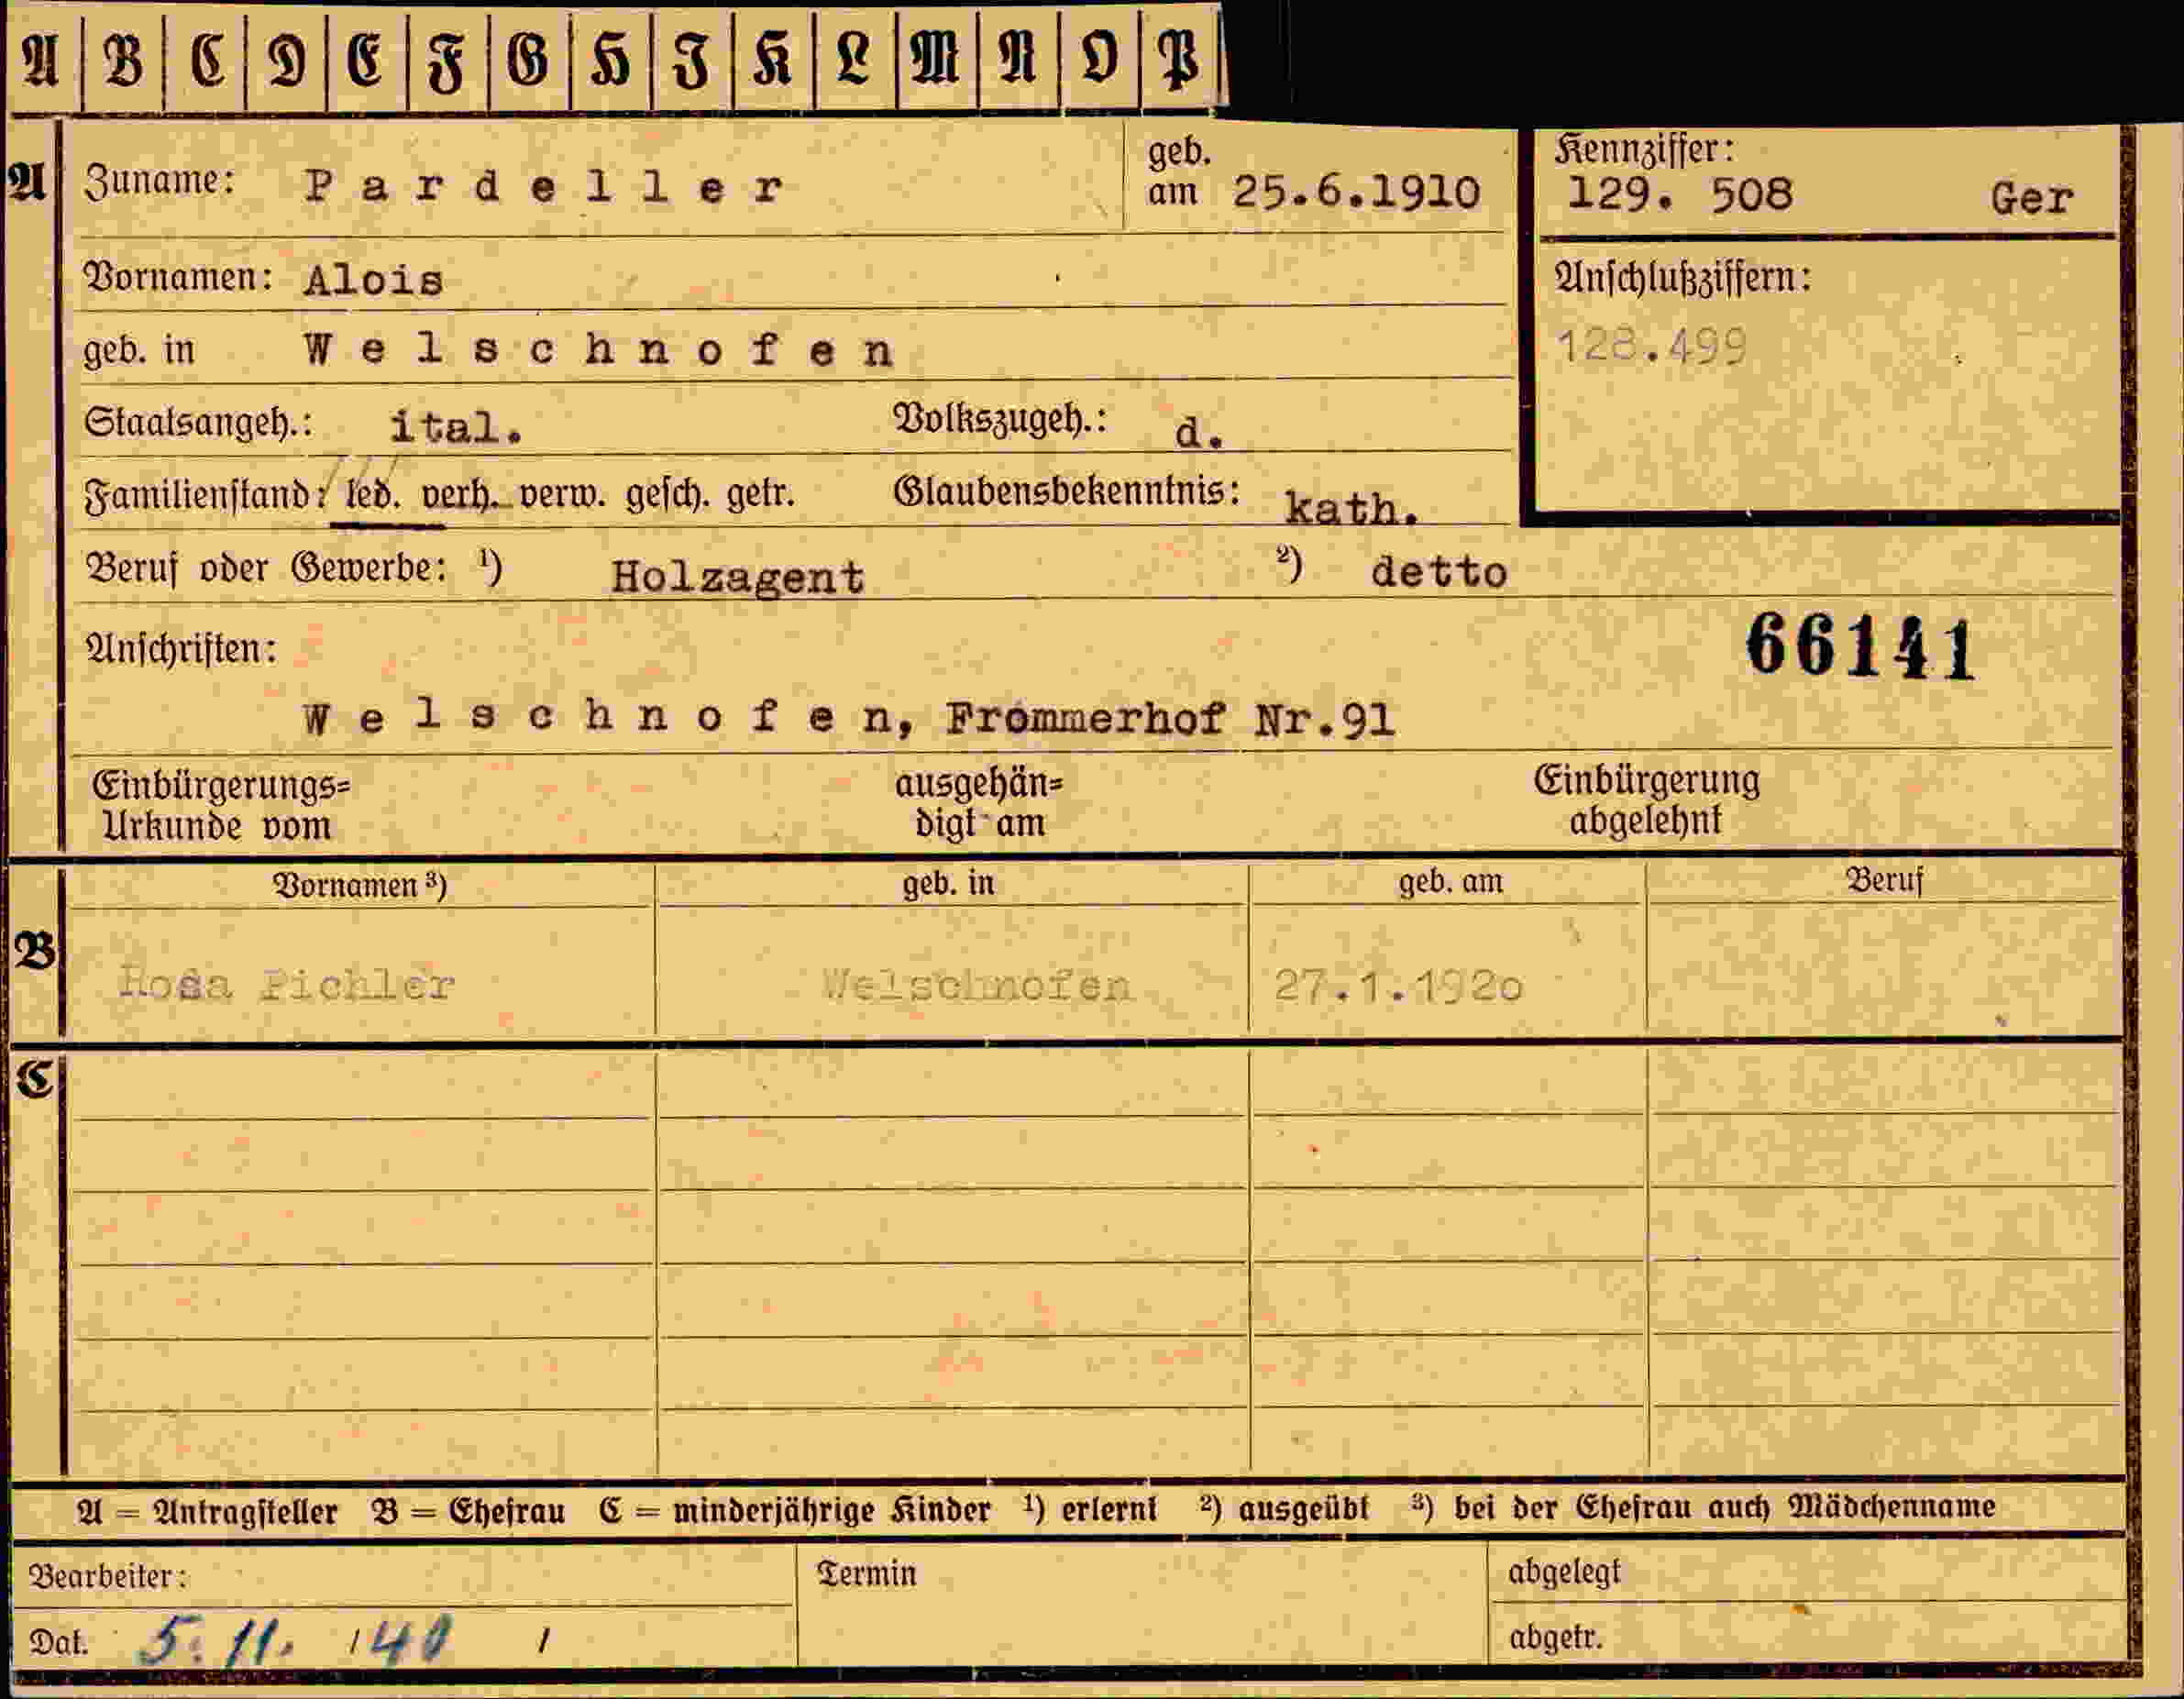 A B C D E F G H I K L M N O P
A Zuname: Pardeller geb. am 25.6.1910
Kennziffer: 129. 508 Ger
Vornamen: Alois
Anschlußziffern:
128.499
geb. in Welschnofen
Staatsangeh.: ital. Volkszugeh.: d.
Familienstand: led. verh. verw. gesch. getr. Glaubensbekenntnis: kath.
Beruf oder Gewerbe: ¹) Holzagent ²) detto
Anschriften:
66141
Welschnofen, Frommerhof Nr.91
Einbürgerungs= Urkunde vom ausgehän= digt am Einbürgerung abgelehnt
Vornamen ³) geb. in geb. am Beruf
B Rosa Pichler Welschnofen 27.1.1920
C
A = Antragsteller B = Ehefrau C = minderjährige Kinder ¹) erlernt ²) ausgeübt ³) bei der Ehefrau auch Mädchenname
Bearbeiter: Termin abgelegt
Dat. 5. 11. 40 abgetr.